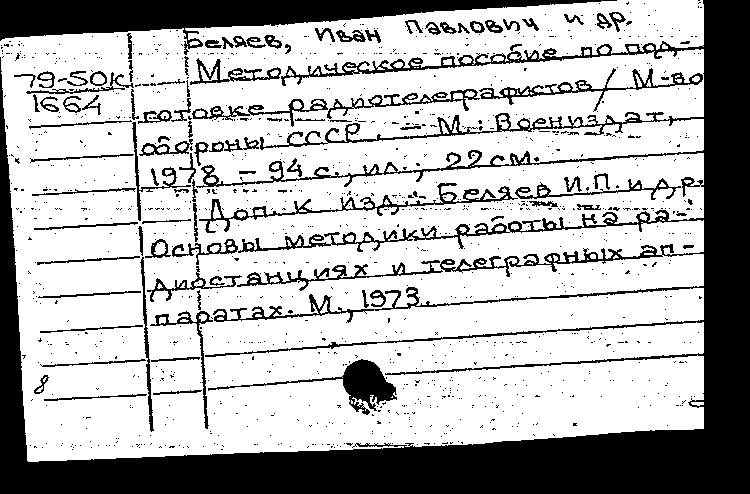 Беляев, Иван Павлович и др.
79-50к Методическое пособие по под-
1664 готовке радиотелеграфистов / М-во
обороны СССР. - М.: Воениздат,
1978 - 94 с., ил.; 22 см.
Доп. к изд.: Беляев И.П. и др.
Основы методики работы на ра-
диостанциях и телеграфных ап-
паратах. М., 1973.
8